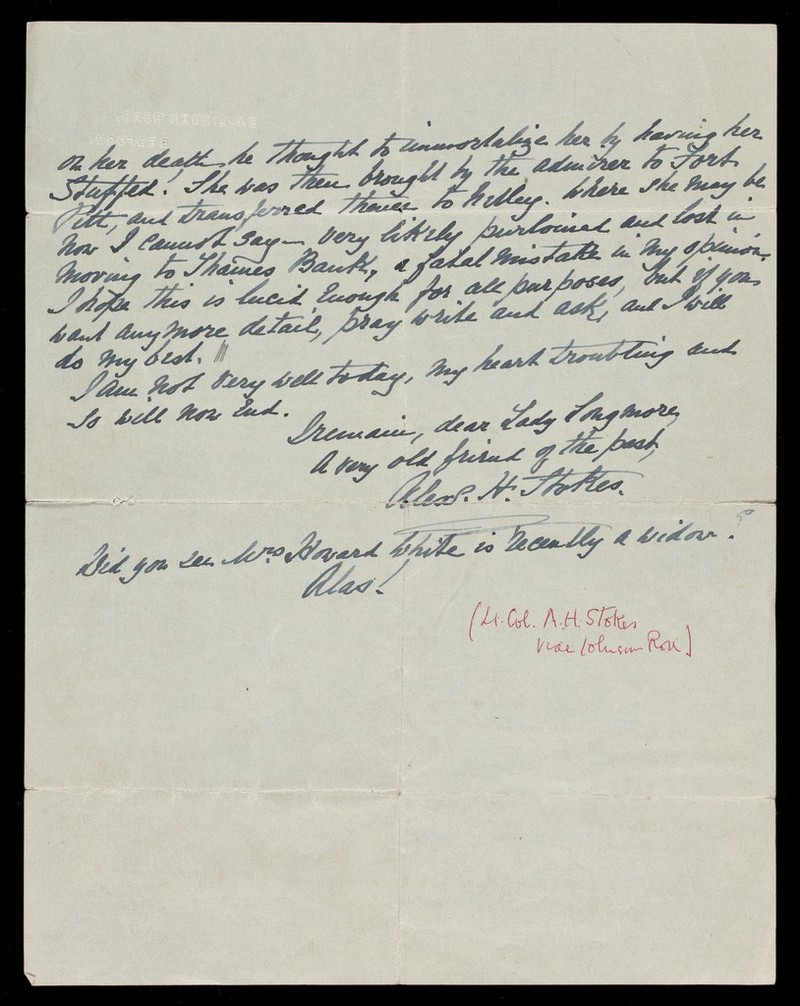 on her death he thought to immortalize her by having her
Stuffed! She was then brought by the admirer to Fort
Pitt, and transferred thence to Netley. Where she may be
now I cannot say – very likely purloined and lost in
moving to Thames Bank, a fatal mistake in my opinion.
I hope this is lucid enough for all purposes, but if you
want any more detail, pray write and ask, and I will
do my best.
I am not very well today, my heart troubling and
so will now end.
I remain, dear Lady Longmore,
A very old friend of the past,
Alexr. H. Stokes.
Did you see Mrs Howard White is recently a widow.?
Alas!
(Lt. Col. A.H. Stokes
vide Johnson Roll)